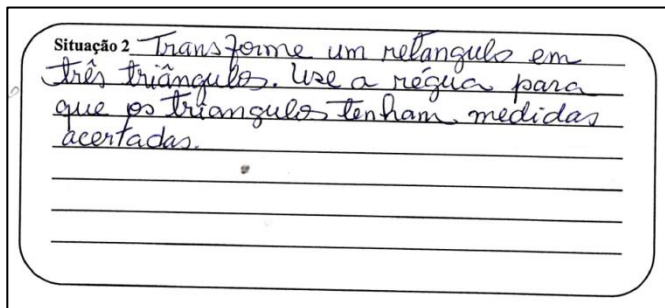 Situação 2 Transforme um retangulo em
três triângulos. Use a régua para
que os triangulos tenham medidas
acertadas.